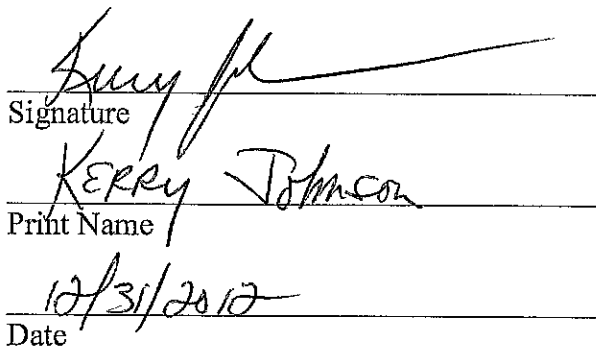 Kerry Joh
Signature
KERRY Johnson
Print Name
12/31/2012
Date